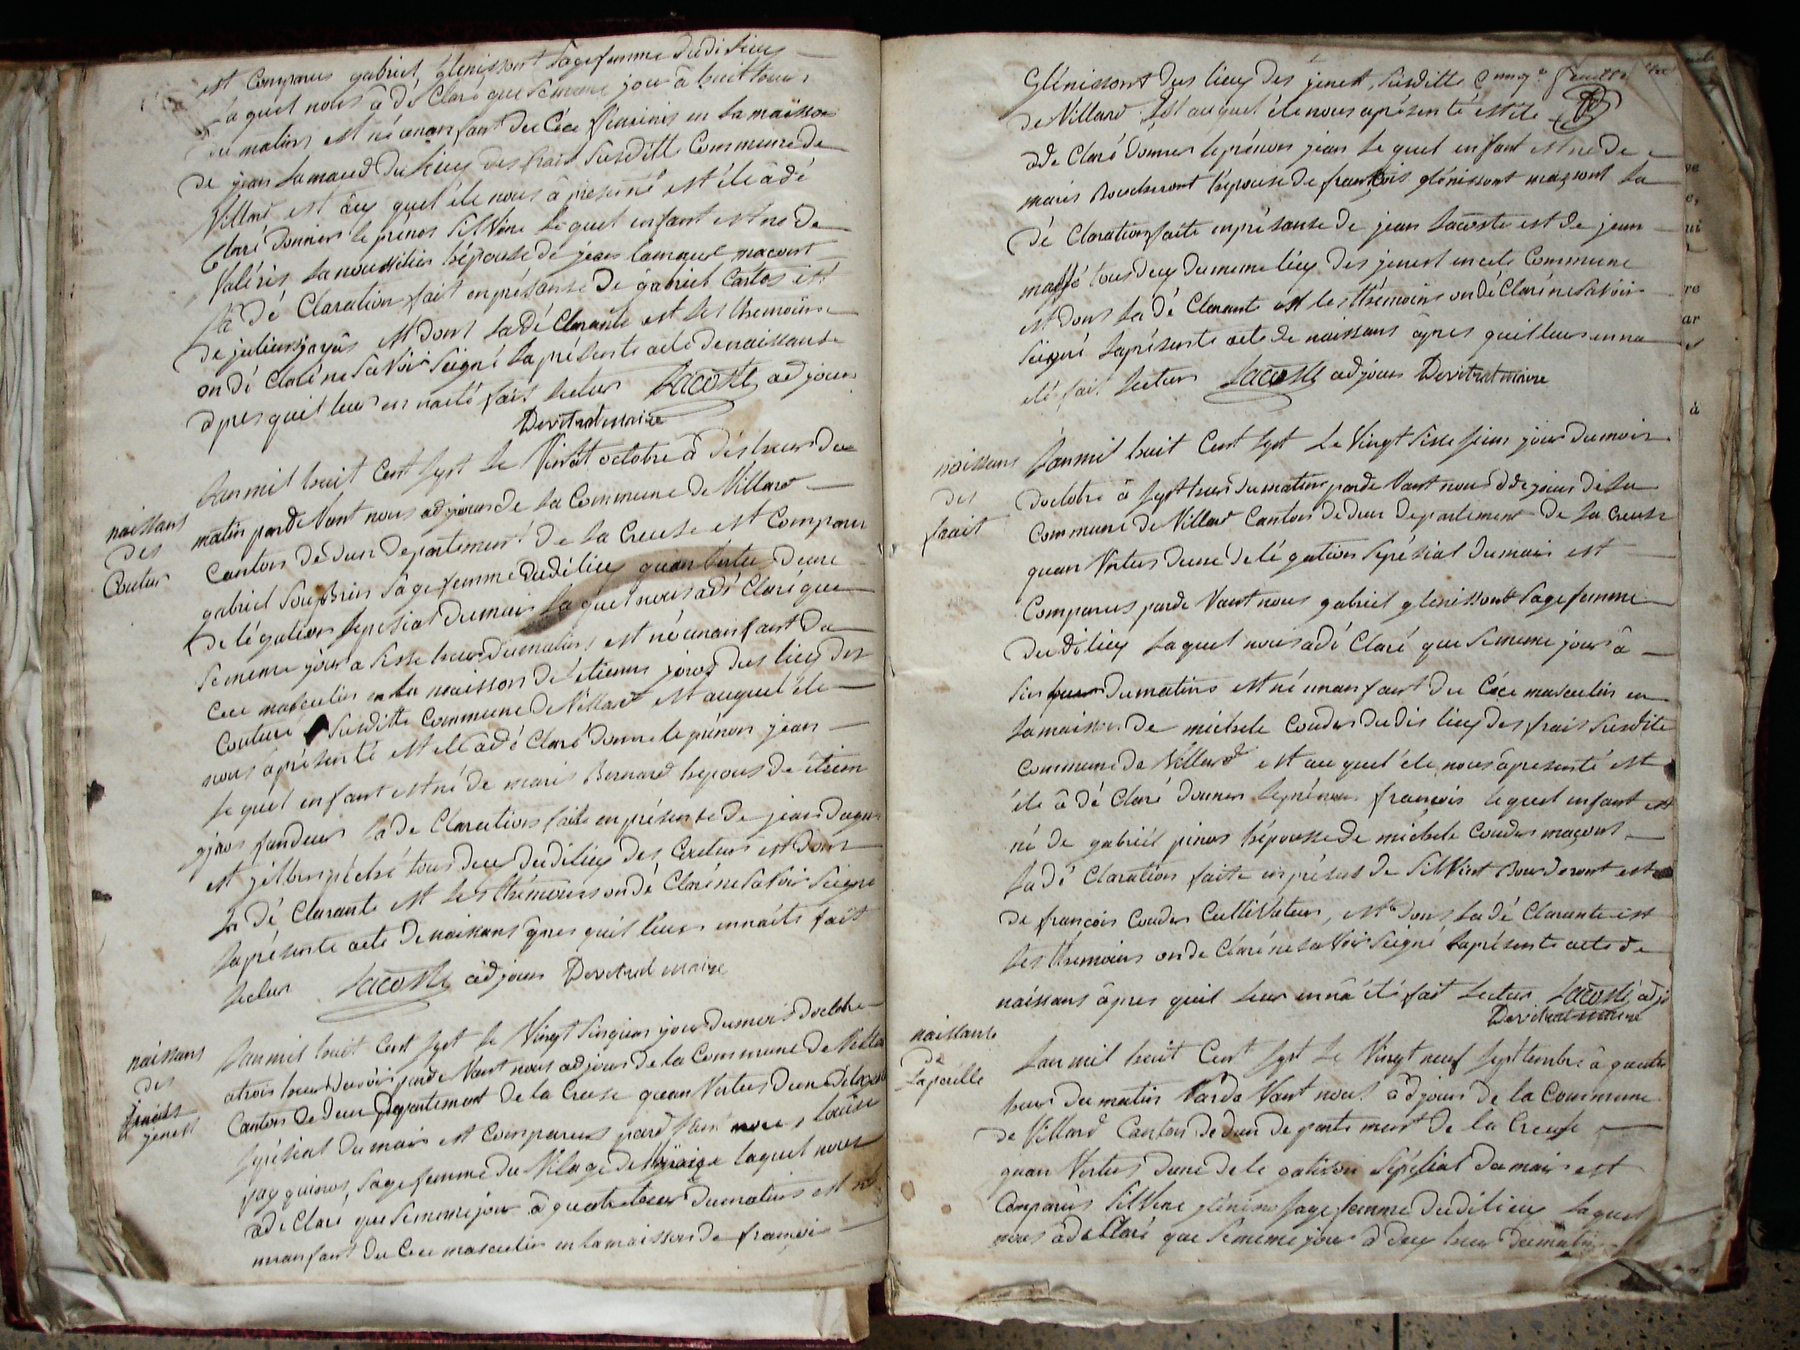 est Comparus gabriel glénissont sagefemme dudi lieux
Laquel nous à dé Claré que Sememe jour à huit heure
du matins est né unanfant du Céce féminins en La maison
de jean Lamaud du lieux des frais Susditte Commune de
Villard est auquel éle nous à présenté est éle à dé
Claré donner le prénos Silvine Le quel enfant est né de
Valéris Lanoussilier lépouse de jean Lamaud maçont
La dé Claration fait en présanse de gabriel Cartos est
de juliens est dont La dé Clarante est Les thémoins
on dé Claré ne Savoir Seigné La présente acte de naissanse
apres quil leur en naété fait Lectur Lacoste adjoien
Devitrat maire
naissans
des
Coutur
Lanmil huit Cent Sept Le Vinst octobre à dis heur du
matin parde Vant nous adjoien de La Commune de Villard
Canton de dun departement de La Creuse est Comparu
gabriel Sagefemme dudélieu quan Vertus dune
délégation Sepésial du maire Laquel nous adé Claré que
Se meme jour a Sisse heur du matin est né unanfant du
Cece masculin en La maisson détienne joros des lieu des
Couture Susditte Commune de Villard est auquel éle
nous à présenté est éle à dé Claré donne le prénon jean
Le quel enfant est né de marie Bernard lepous de étienn
joros fandeur La de Claration faite en présente de jean
est tous deu dudélieu des Couture est dont
La dé Clarante est Les thémoins on dé Claré ne Savoir Seigné
La présente acte de naissans apres quil leur ennaété fait
Lectur Lacoste adjoien Devitrat maire
naissans
des
jenest
Lanmil huit Cent Sept Le Vingt Sinquiem jour du mois doctobre
atrois heur du soir parde Vant nous adjoien de la Commune de Villard
Canton de dun Departement de la Creuse quan Vertus dune
Sepésial du maire est Comparus pard Van nous, Louise
Sagefemme du Vilage de laquel nous
à dé Claré que Sememe jour à quatre heur dumatins est né
unanfant du Cece masculin en La maisson de françois
Glénissont des lieu des jenest, Susditte
de Villard Est auquel éle nous à présenté est éle
à de Claré donner le prénon jean Le quel enfant est né de
marie Bourderont lépouse de françois glénissont maçont La
dé Claration faite en présanse de jean Lacoste est de jean
tous deux du meme lieu des jenest en cete Commune
est dont La dé Clarant est Les thémoins on dé Claré ne Savoir
Seigné La présente acte de naissans âpres quil leur enna
été fait Lectur Lacoste adjoien Devitrat maire
naissans
des
frait
Lanmil huit Cent Sept Le Vingt jour du mois
doctobre à Sept heur du matin parde Vant nous adjoien de La
Commune de Villard Canton de dun departement de La Creuse
quan Vertus dune délégation Sepésial du maire est
Comparus parde Vant nous gabriel glénissont Sagefemme
dudélieu Laquel nous adé Claré que Sememe jour à
sis heur du matins est né unanfant du Céce masculin en
La maison de michele Couder du dis lieu des frais Susdite
Commune de Villard est auquel éle nous à présenté est
éle à dé Claré donner Le prénon françois le quel enfant est
né de gabriél pinos lépousse de michele Couder maçont
La dé Claration faite en présens de Silvint Bourderont est
de françois Couder Cultivateur, est dont La dé Clarante est
Les thémoins on dé Claré ne Savoir Seigné La présente acte de
naissans âpres quil Leur ennâété fait Lectur Lacoste adj
Devitrat maire
naissanse
de
Lapoille
Lan mil huit Cent Sept Le Vingt neuf Septembre à quatre
heur du matin Parde Vant nous adjoien de la Commune
de Villard Canton de dun departement de la Creuse
quan Vertus dune délégation Sepésial du maire est
Comparus Silvine Sagefemme dudélieu Laquel
nous à dé Claré que Sememe jour à deux heur du matin